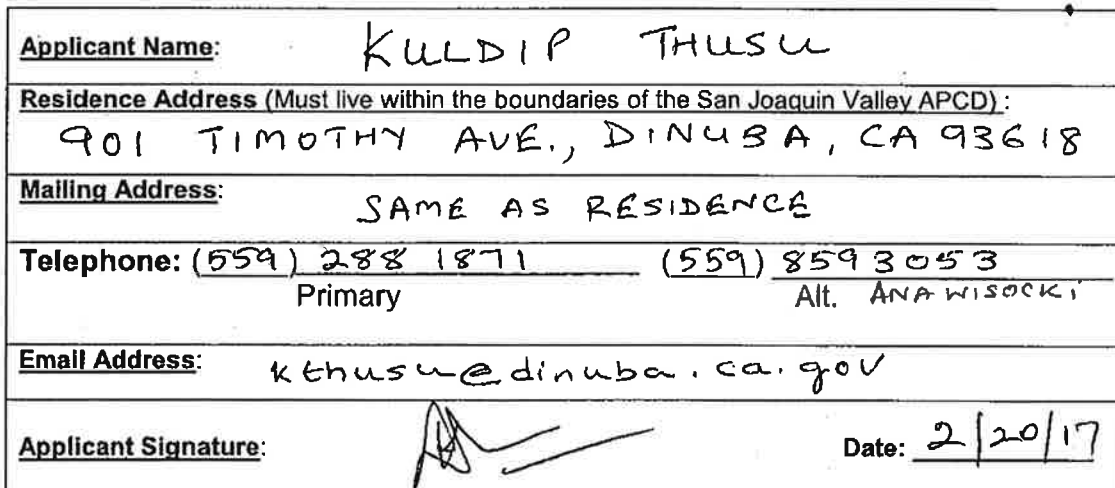 Applicant Name: KULDIP THUSU
Residence Address (Must live within the boundaries of the San Joaquin Valley APCD) :
901 TIMOTHY AVE., DINUBA, CA 93618
Mailing Address:
SAME AS RESIDENCE
Telephone: (559) 288 1871 (559) 859 3053
Primary Alt. ANA WISOCKI
Email Address: kthusu@dinuba.ca.gov
Applicant Signature: Date: 2/20/17